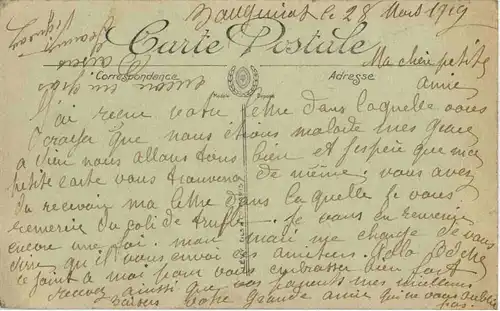 le 28 Mars 1919
Carte Postale
Correspondance
Adresse
Ma chère petite
amie
J'ai reçue votre lettre dans laquelle vous
croyer que nous étions malade mes grace
a Dieu nous allons tous bien et j'espère que ma
petite carte vous trouvera de même. vous avez
du recevoir ma lettre dans laquelle je vous
remercie du coli de truffe. je vous en remercie
encore une foi. mon mari me charge de vous
dire qu'il vous envoi ces amitiers.
ce joint a moi pour vous embrasser bien fort
recevez ainsi que vos parents mes meilleurs
baisers votre grande amie qui ne vous oublie
pas.
encore un gros